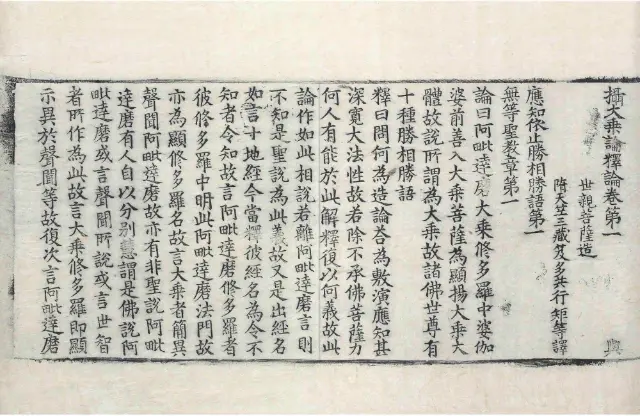 攝大乘論釋論卷第一
世親菩薩造
隋天竺三藏笈多共行矩等譯
興
應知依止勝相勝語第一
無等聖教章第一
論曰阿毗達磨大乘修多羅中婆伽
婆前善入大乘菩薩為顯揚大乘大
體故說所謂為大乘故諸佛世尊有
十種勝相勝語
釋曰問何為造論荅為敷演應知甚
深寬大法性故若除不承佛菩薩力
何人有能於此解釋復以何義故此
論作如此相說若離阿毗達磨言則
不知是聖說為此義故又是出經名
如言十地經今當釋彼經名為令不
知者令知故言阿毗達磨修多羅者
彼修多羅中明此阿毗達磨法門故
亦為顯修多羅名故言大乘者簡異
聲聞阿毗達磨故亦有非聖說阿毗
達磨有人自以分別慧謂是佛說阿
毗達磨或言聲聞所說或言世智
者所作為此故言大乘修多羅即顯
示異於聲聞等故復次言阿毗達磨